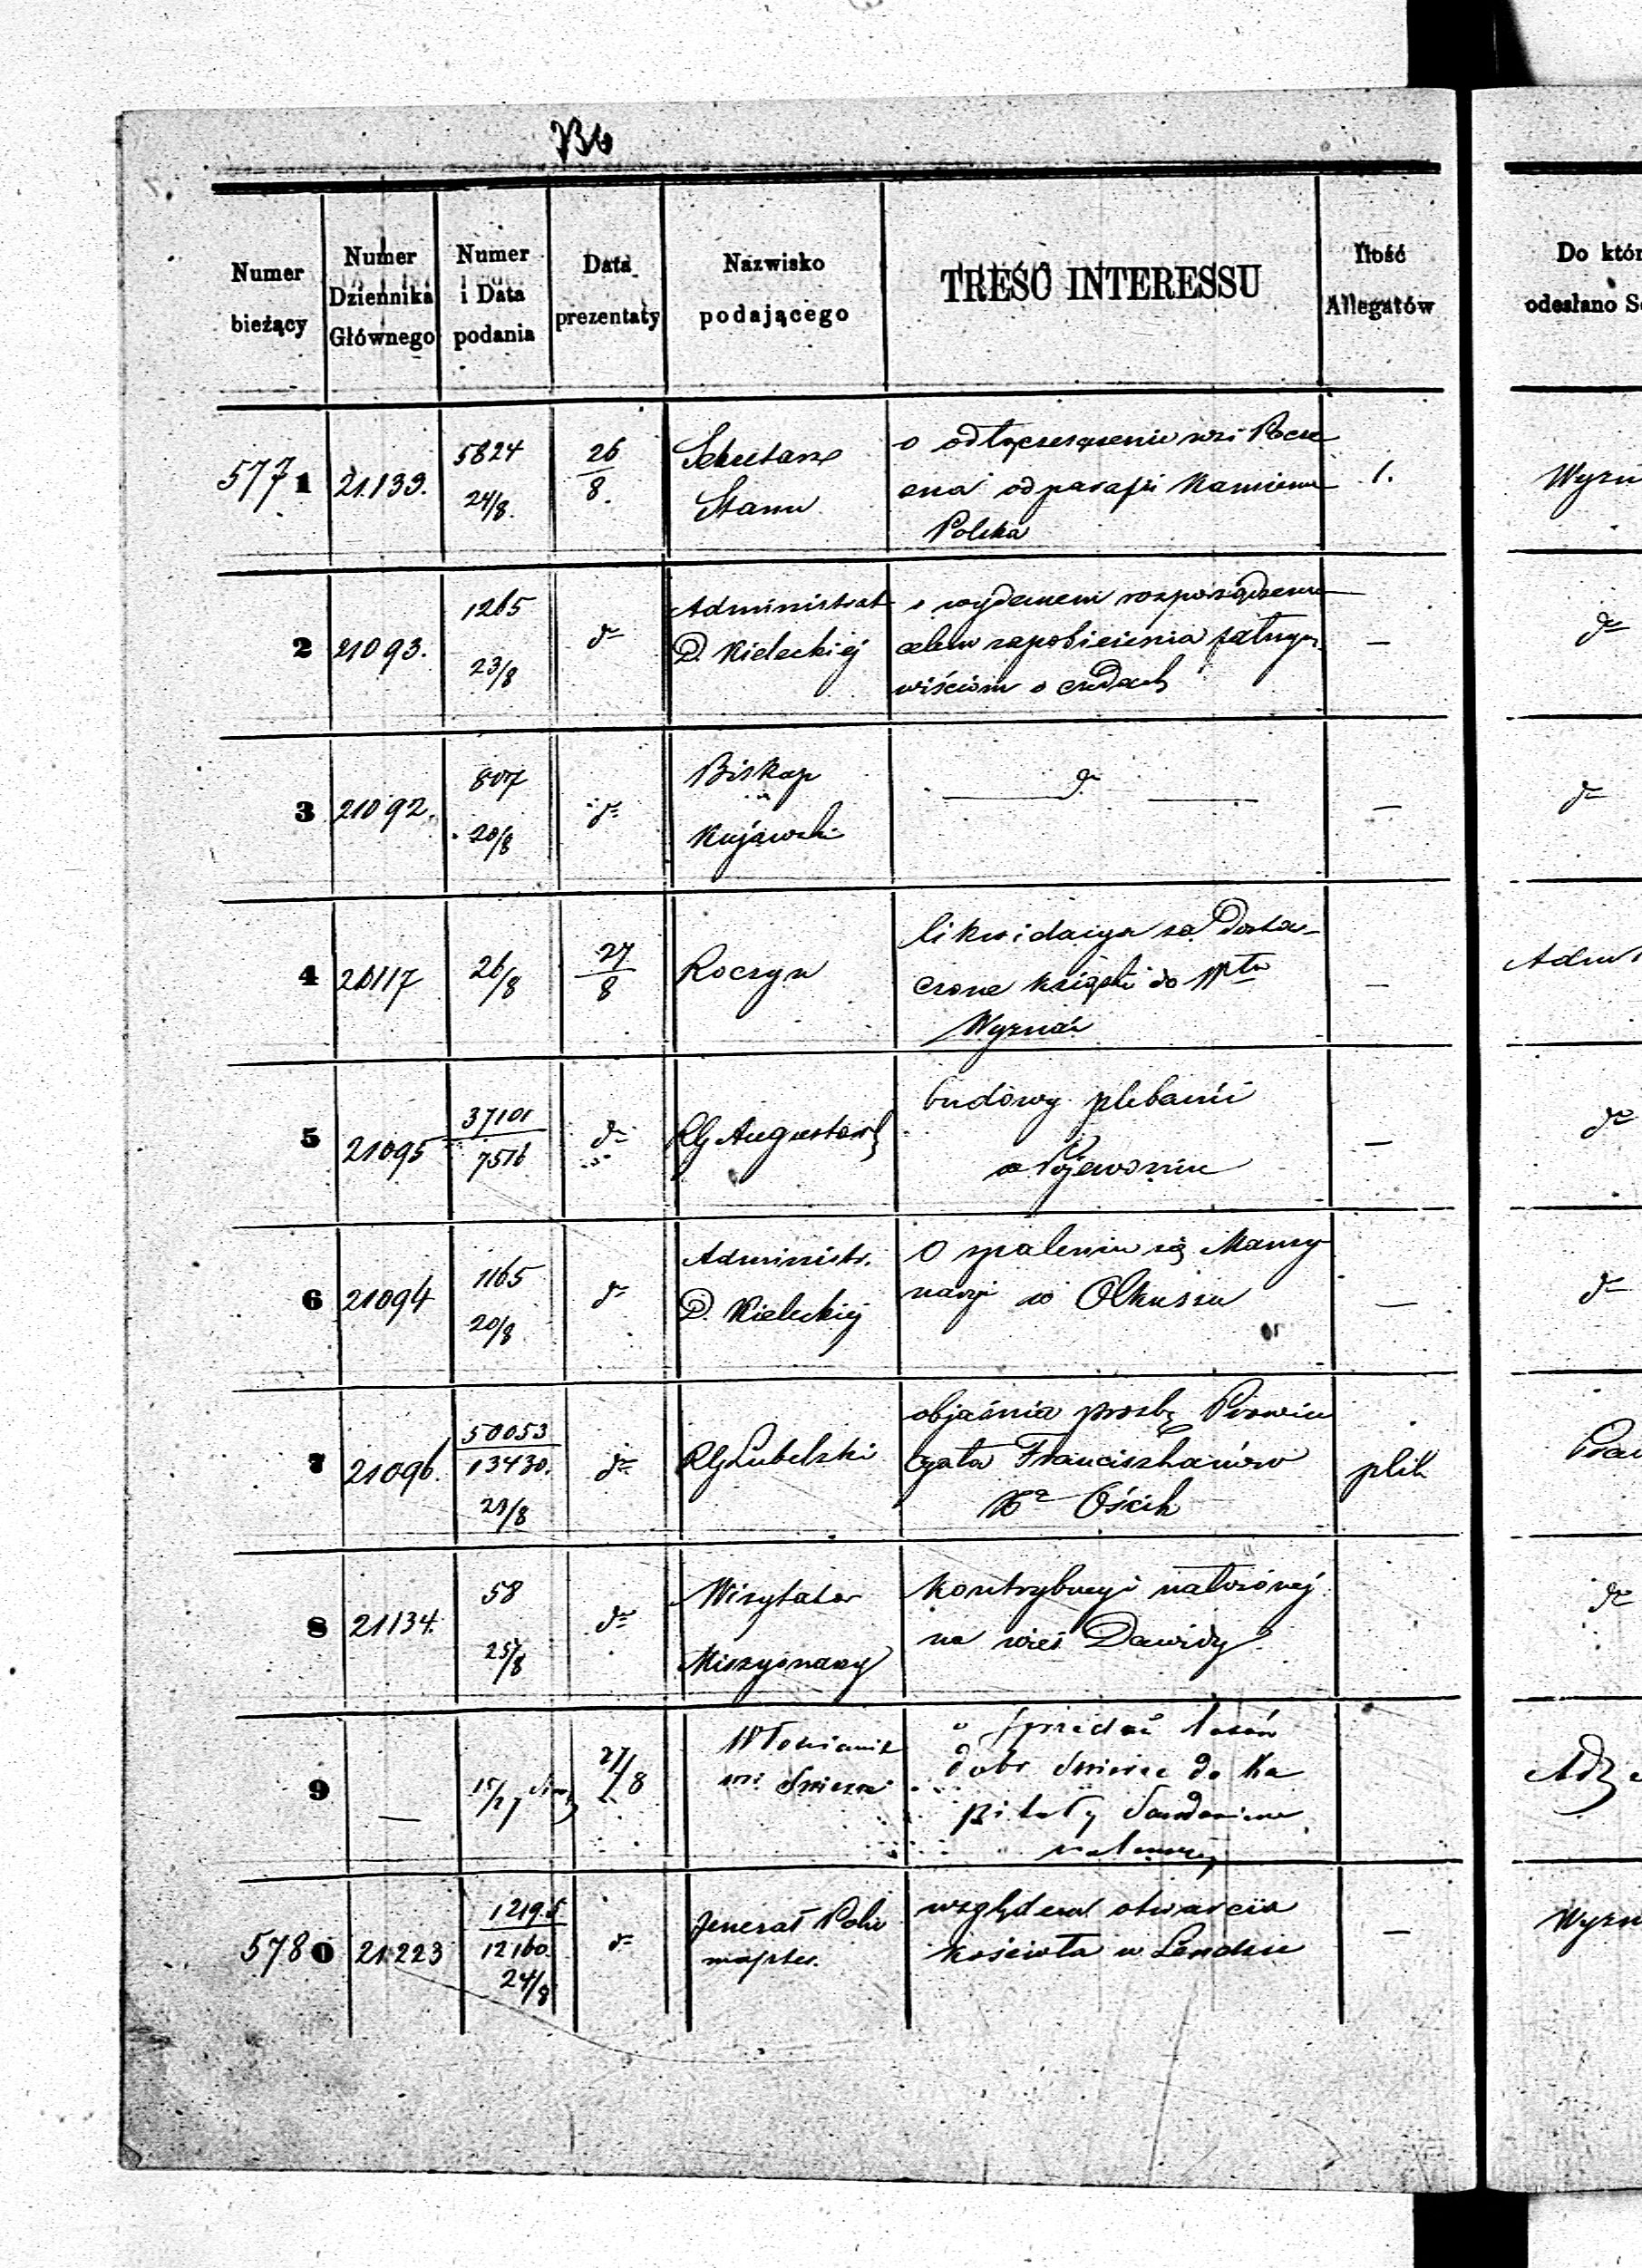 736
Numer bieżący
Numer Dziennika Głównego
Numer i Data podania
Data prezentaty
Nazwisko podającego
TREŚĆ INTERESSU
Ilość Allegatów
Do któr
odesłano Se
5771 21.139. 5824 24/8. 26/8. Sekretarz Stanu
o odłączenie wsi
od parafii Kamienna
Polska
1.
Wyzn
2 21093. 1265 23/8 dº Administrat D. Kieleckiéj
o wydanem rozporządzeniu
celem zapobieżenia fałszy
wieściom o cudach
—
dº
3 21092. 807 20/8 dº Biskup Kujawski
dº
—
dº
4 21117 26/8 27/8 Roczyn
likwidacya za dosta-
czone książki do
Wyznań
—
Adm
5 21095 37101 7516 dº RG Augustows
budowy plebanii
w
—
dº
6 21094 1165 20/8 dº Administr. D. Kieleckiéj
O spaleniu się Mansy
naryi w Olkuszu
—
dº
7 21096. 50053 13430. 23/8 dº RG Lubelski
objaśnia prośbę Prowin
cyała Franciszkanów
Xa Ościk
plik
Praw
8 21134. 58 25/8 dº Wizytator Missyonarzy
Kontrybucyi nałożonéj
na wieś Dawidy
dº
9 — 15/27 27/8 Włościanie wsi
o sprzedaż lasów
dobr do Ka
pituły Sandomier
należnéj
5780 21223 12195 12160. 24/8 dº Jenerał Polic majster.
względem otwarcia
kościoła w Lendzie
—
Wyzn